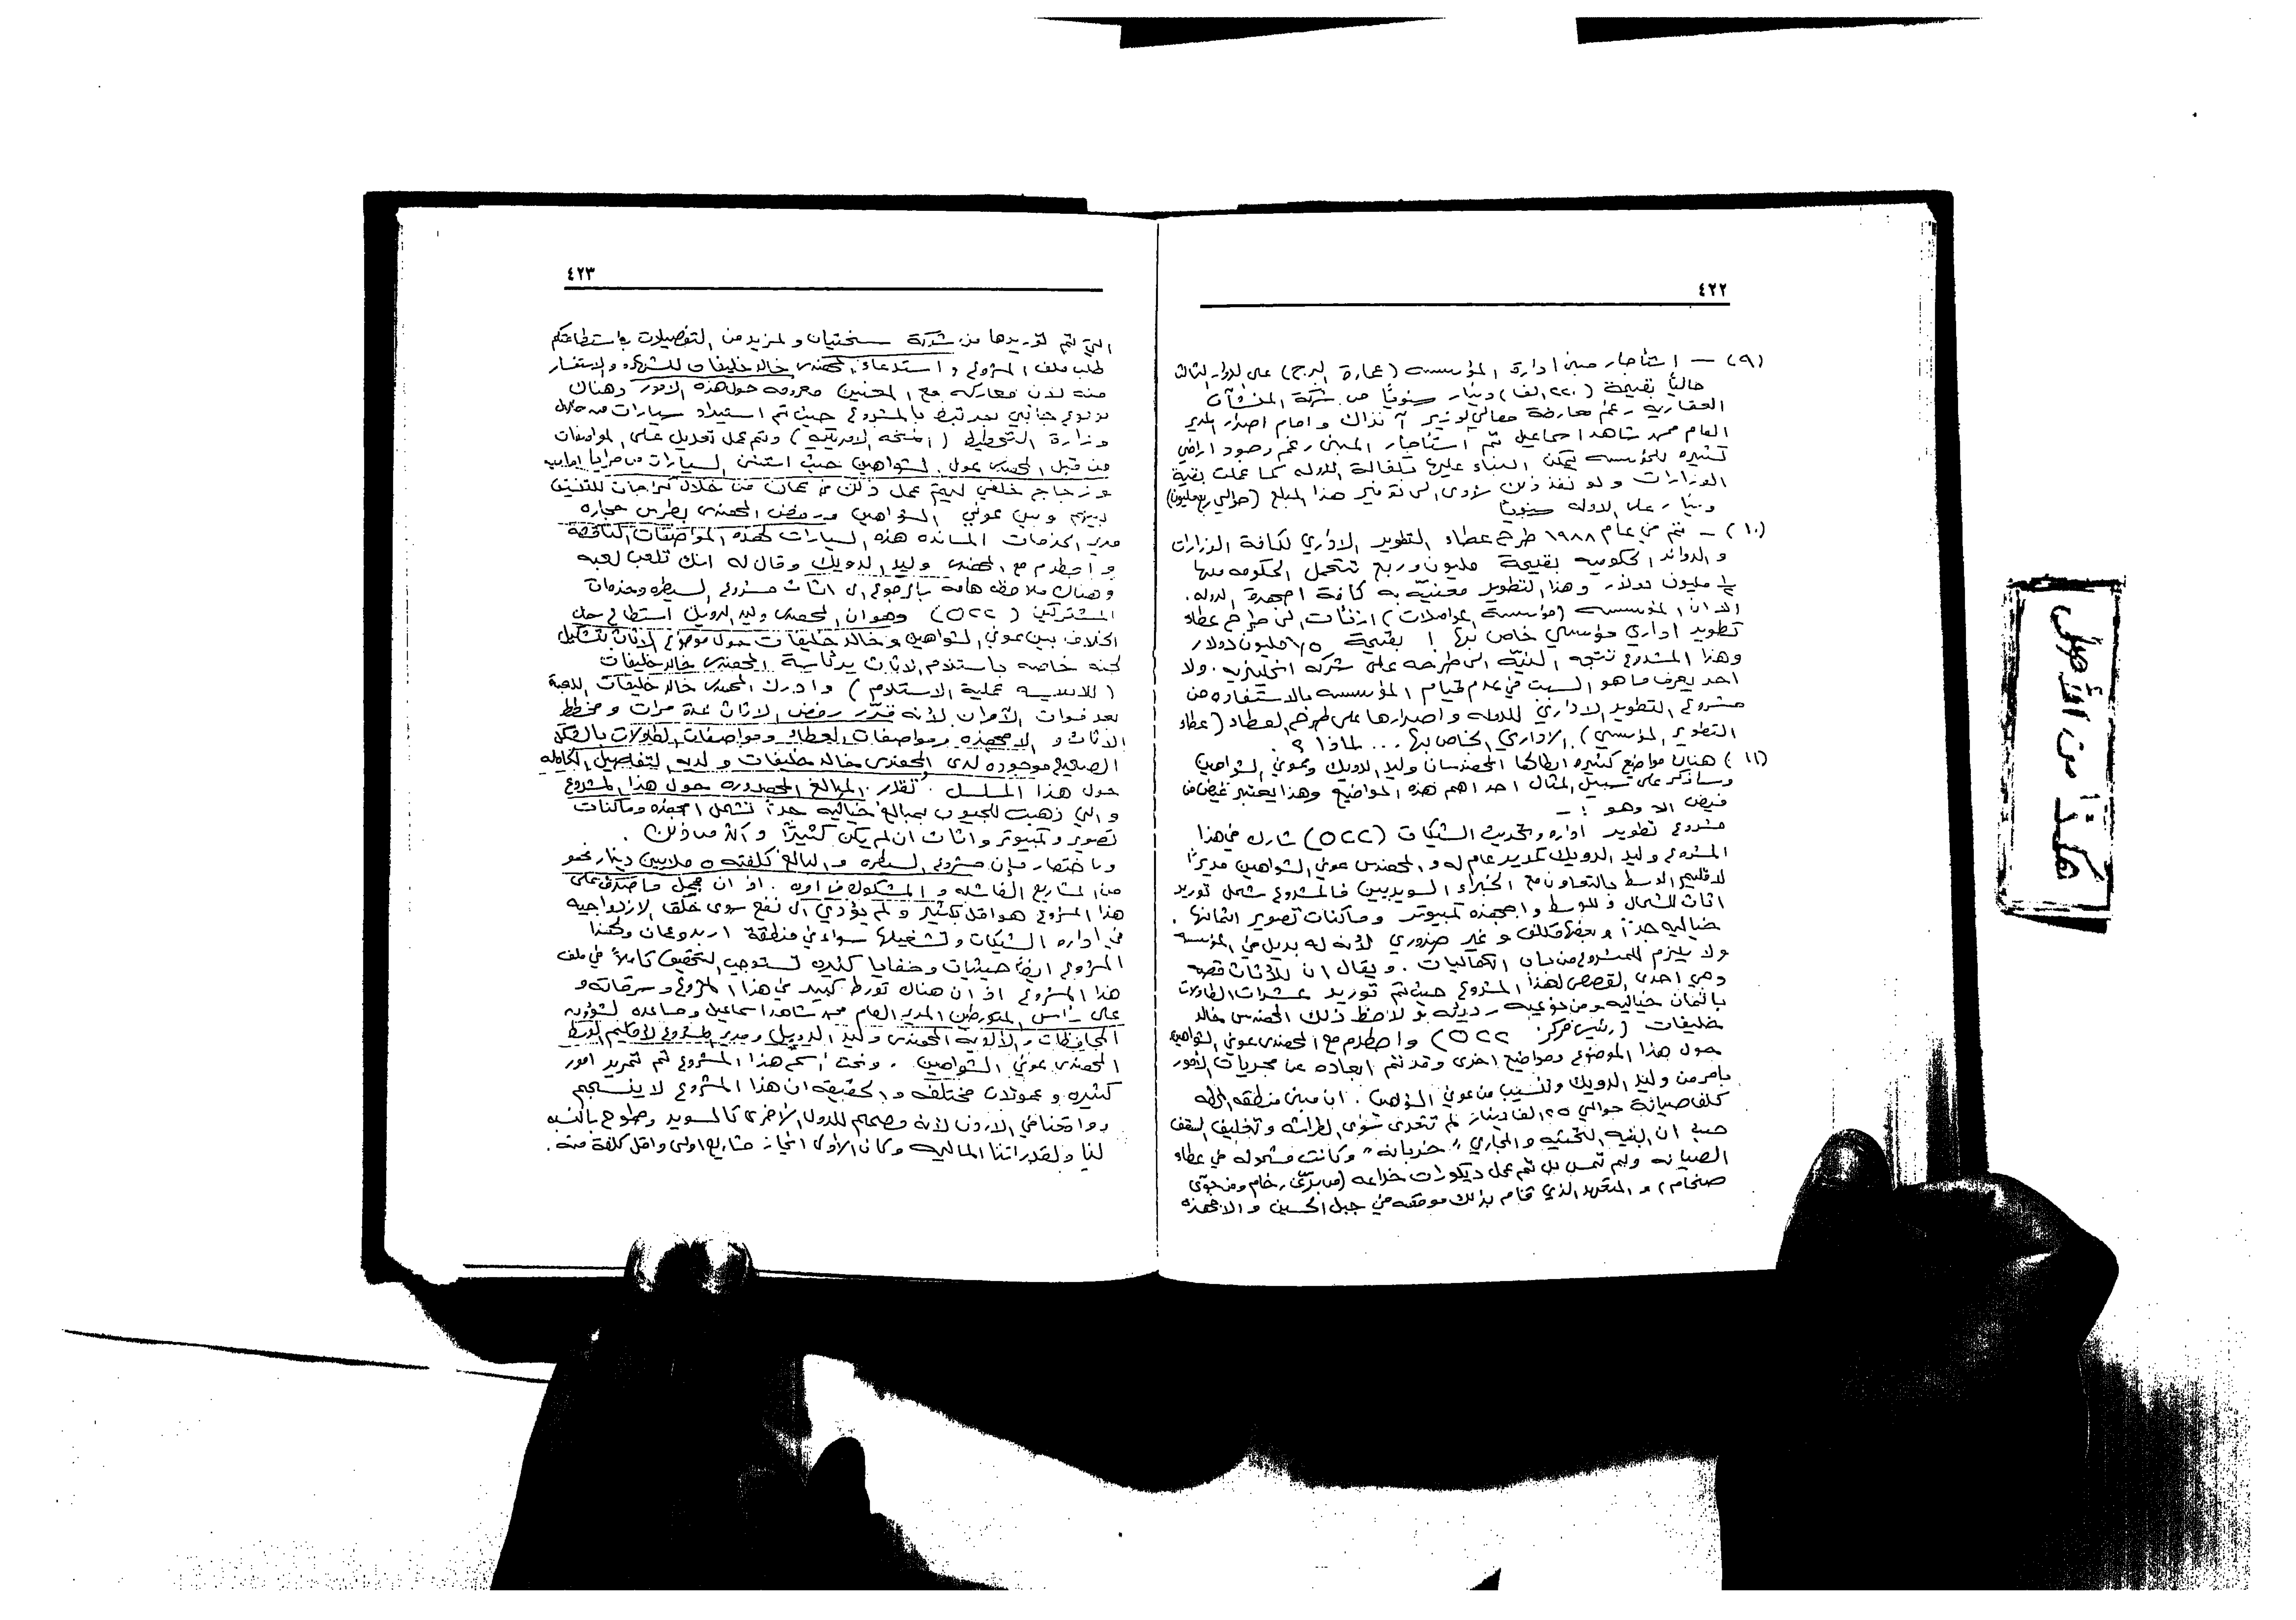 ٤٢٢
(٩) - إستئجار مبنى ادارة المؤسسه (عمارة البرج) على الدوار الثالث
حالياً بقيمة (٢٢٠ الف) دينار سنوياً من شركة المنشآت
العقاريه رغم معارضة معالي الوزير آنذاك و امام اصرار المدير
العام محمد شاهد اسماعيل تم استئجار المبنى رغم وجود اراضي
كثيره للمؤسسه يمكن البناء عليها بكفالة الدوله كما عملت بقية
الوزارات و لو نفذ ذلك لأدى الى توفير هذا المبلغ (حوالي ربع مليون)
دينار على الدوله سنوياً
(١٠) - تم في عام ١٩٨٨ طرح عطاء التطوير الاداري لكافة الوزارات
و الدوائر الحكوميه بقيمة مليون وربع تتحمل الحكومه منها
مليون دولار وهذا التطوير معنيّه به كافة اجهزة الدوله.
الا ان المؤسسه (مؤسسة المواصلات) ارتئات الى طرح عطاء
تطوير اداري مؤسسي خاص بها ! بقيمة مليون دولار
وهذا المشروع تتجه النيّه الى طرحه على شركه انجليزيه. ولا
احد يعرف ما هو السبب في عدم قيام المؤسسه بالاستفاده من
مشروع التطوير الاداري للدوله و اصرارها على طرح العطاء (عطاء
التطوير المؤسسي) الاداري الخاص بها ... لماذا ؟
(١١) هناك مواضيع كثيره ابطالها المهندسان وليد الدويك وعوني الشواهين
وسأذكر على سبيل المثال احد اهم هذه المواضيع وهذا يعتبر غيض من
فيض الا وهو : -
مشروع تطوير اداره وتحديث الشبكات (٥٢٢) شارك في هذا
المشروع وليد الدويك كمدير عام له و المهندس عوني الشواهين مديراً
لاقليم الوسط بالتعاون مع الخبراء السويديين فالمشروع شمل توريد
اثاث للشمال و للوسط و اجهزه كمبيوتر وماكنات تصوير اثمانها
خياليه جداً و بعضها مكلف و غير ضروري لأنه له بديل في المؤسسه
ولا يلزم للمشروع من باب الكماليات. ويقال ان للأثاث قصه
وهي احدى القصص لهذا المشروع حيث تم توريد عشرات الطاولات
باثمان خياليه ومن نوعيه رديئه و لاحظ ذلك المهندس خالد
خليفات (رئيس مركز ٥٢٢) واصطدم مع المهندس عوني الشواهين
حول هذا الموضوع ومواضيع اخرى وقد تم ابعاده عن مجريات الأمور
بامر من وليد الدويك وتنسيب من عوني الشواهين. ان مبنى منطقة
كلف صيانة حوالي ٢٥ الف دينار لم تتعدى سوى الطراشه و تغليف السقف
حيث ان البنيه التحتيه و المجاري "خربانه" وكانت مشموله في عطاء
الصيانه ولم تمس بل تم عمل ديكورات خداعه (من برّى رخام ومن جوّى
صخام) و المتعهد الذي قام بذلك موقعه في جبل الحسين و الاجهزه
٤٢٣
التي تم توريدها من شركة سختيان و لمزيد من التفصيلات باستطاعتكم
طلب ملف المشروع و استدعاء المهندس خالد خليفات للشهاده و الاستفسار
منه لأن معاركه مع المعنيين معروفه حول هذه الامور وهناك
موضوع جانبي مرتبط بالمشروع حيث تم استيراد سيارات من خلال
وزارة التخطيط (المنحه الامريكيه) وتم عمل تعديل على المواصفات
من قبل المهندس عوني الشواهين حيث استثنى السيارات من مرايا
و زجاج خلفي ليتم عمل ذلك في عمان من خلال كراجات للتنسيق
بينهم وبين عوني الشواهين ورفض المهندس بطرس حجاره
مدير الخدمات المسانده هذه السيارات لهذه المواصفات الناقصه
و اصطدم مع المهندس وليد الدويك وقال له انك تلعب لعبه
وهناك ملاحظه هامه بالرجوع الى اثاث مشروع السيطره وخدمات
المشتركين (٥٢٢) وهو ان المهندس وليد الدويك استطاع حل
الخلاف بين عوني الشواهين و خالد خليفات حول موضوع الاثاث بتشكيل
لجنه خاصه باستلام الاثاث برئاسة المهندس خالد خليفات
(للاسيه عملية الاستلام) و ادرك المهندس خالد خليفات اللعبة
بعد فوات الآوان لأنه قرر رفض الاثاث عدة مرات و مخطط
الاثاث و الاجهزه ومواصفات العطاء ومواصفات الطاولات بالشكل
الصحيح موجوده لدى المهندس خالد خليفات و لديه التفاصيل الكامله
حول هذا المسلسل. تقدر المبالغ المهدوره حول هذا المشروع
و التي ذهبت للجيوب بمبالغ خياليه جداً تشمل اجهزه وماكنات
تصوير وكمبيوتر و اثاث ان لم يكن كثيراً و اكثر من ذلك.
وباختصار فإن مشروع السيطره و البالغ كلفته ٥ ملايين دينار هو
من المشاريع الفاشله و المشكوك في اوره. اذ ان مجمل ما صرف على
هذا المشروع هو اقل بكثير و لم يؤدي الى نفع سوى خلق الازدواجيه
في اداره الشبكات و تشغيلها سواء في منطقة اربد وعمان ولهذا
المشروع ايضاً حيثيات وخفايا كثيره تستوجب التحقيق كاملاً في ملف
هذا المشروع اذ ان هناك تورط كبير في هذا المشروع و سرقاته و
على رأس المتورطين المدير العام محمد شاهد اسماعيل ومساعده لشؤون
المحافظات و الألويه المهندس وليد الدويك ومدير المشروع لاقليم الوسط
المهندس عوني الشواهين. وتحت اسم هذا المشروع تم تمرير امور
كثيره و عمولات مختلفه و الحقيقه ان هذا المشروع لا ينسجم
وواقعنا في الاردن لأنه مصمم للدول الأخرى كالسويد وطموح بالنسبه
لنا ولقدراتنا الماليه وكان الأولى انجاز مشاريع اولى واقل كلفة منه.
هكذا من الأصل